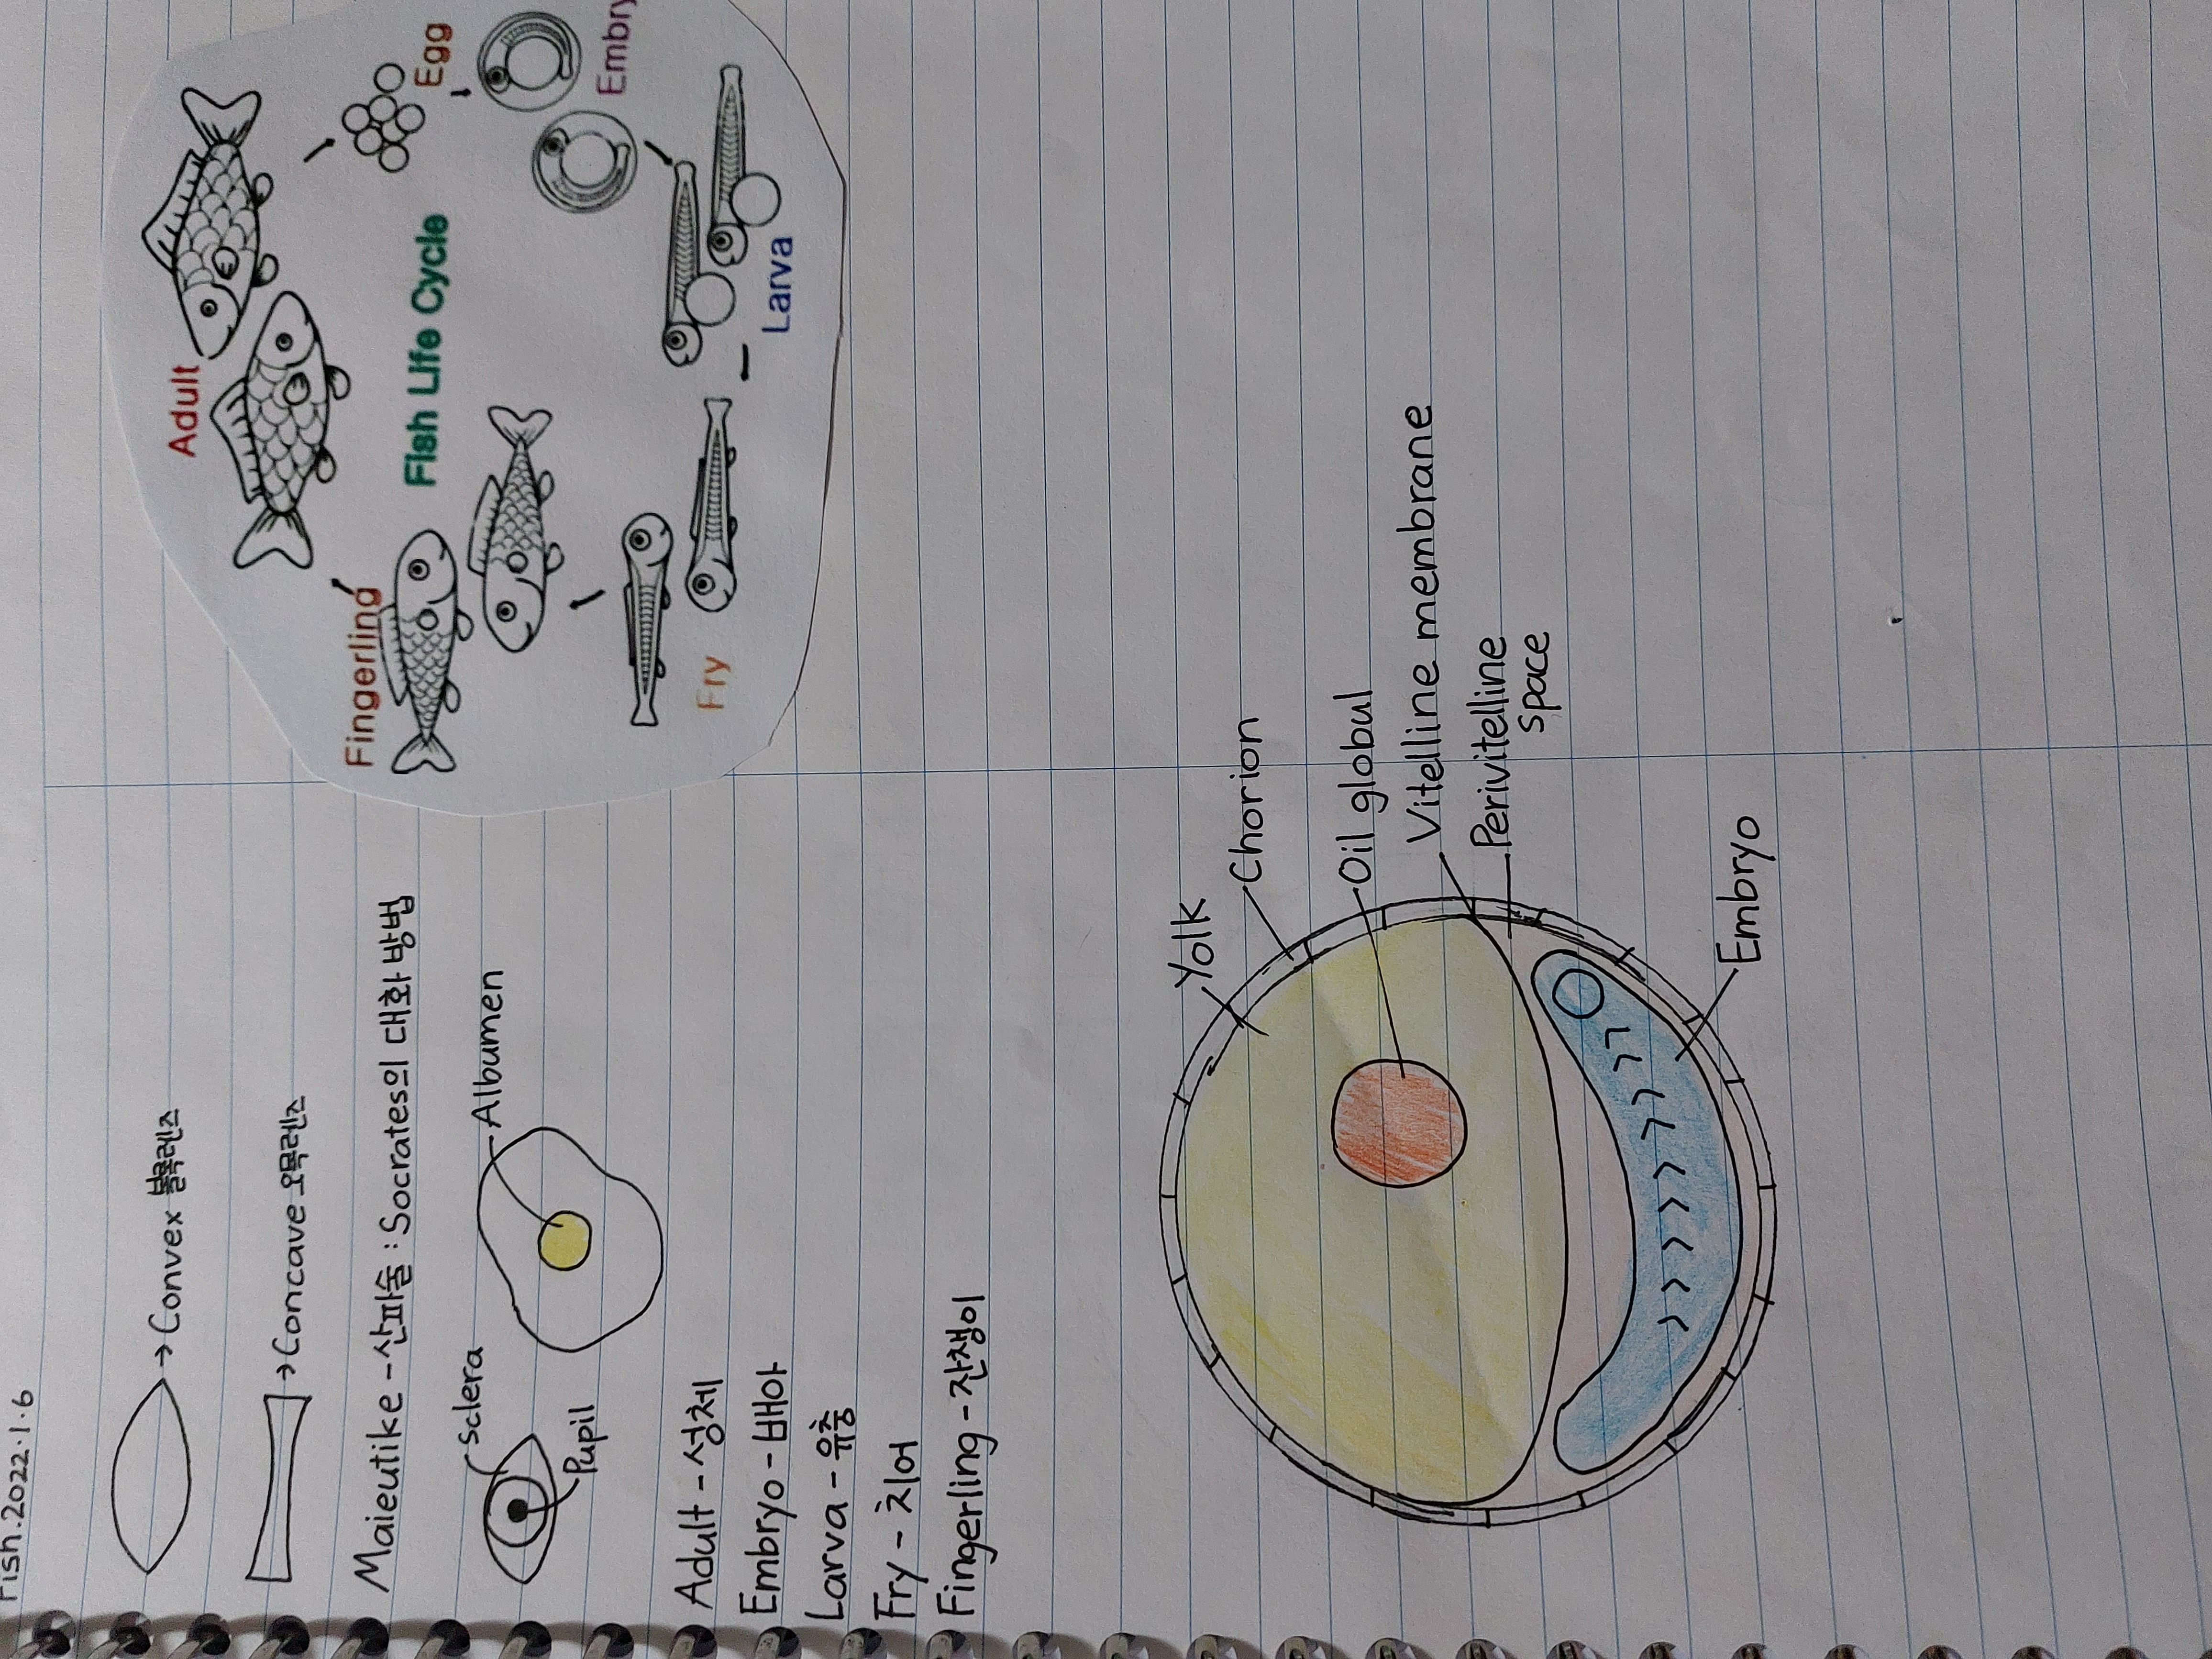 Fish.2022.1.6
→Convex 볼록렌즈
→Concave 오목렌즈
Maieutike-산파술:Socrates의 대화 방법
Sclera
Pupil
Albumen
Adult-성체
Embryo-배아
Larva-유충
Fry-치어
Fingerling-잔챙이
Adult
Egg
Fish Life Cycle
Embry
Fingerling
Larva
Fry
Yolk
Chorion
Oil globul
Vitelline membrane
Perivitelline
space
Embryo